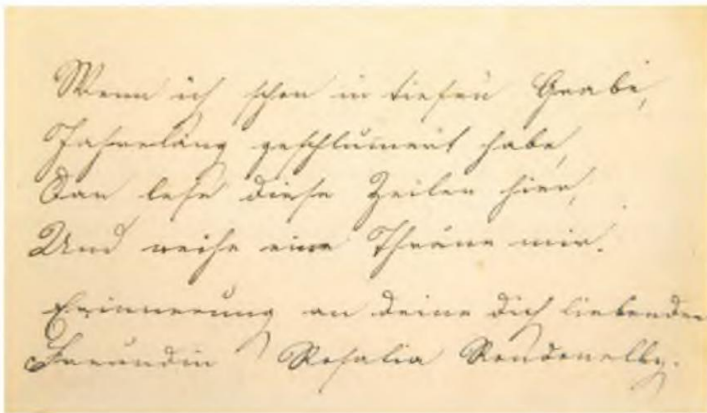 Wenn ich schon in tiefen Grabe,
Jahrelang geschlummert habe,
Dan lese diese Zeilen hier,
Und weihe eine Thräne mir.
Erinnerung an deine dich liebende
Freundin Rosalia